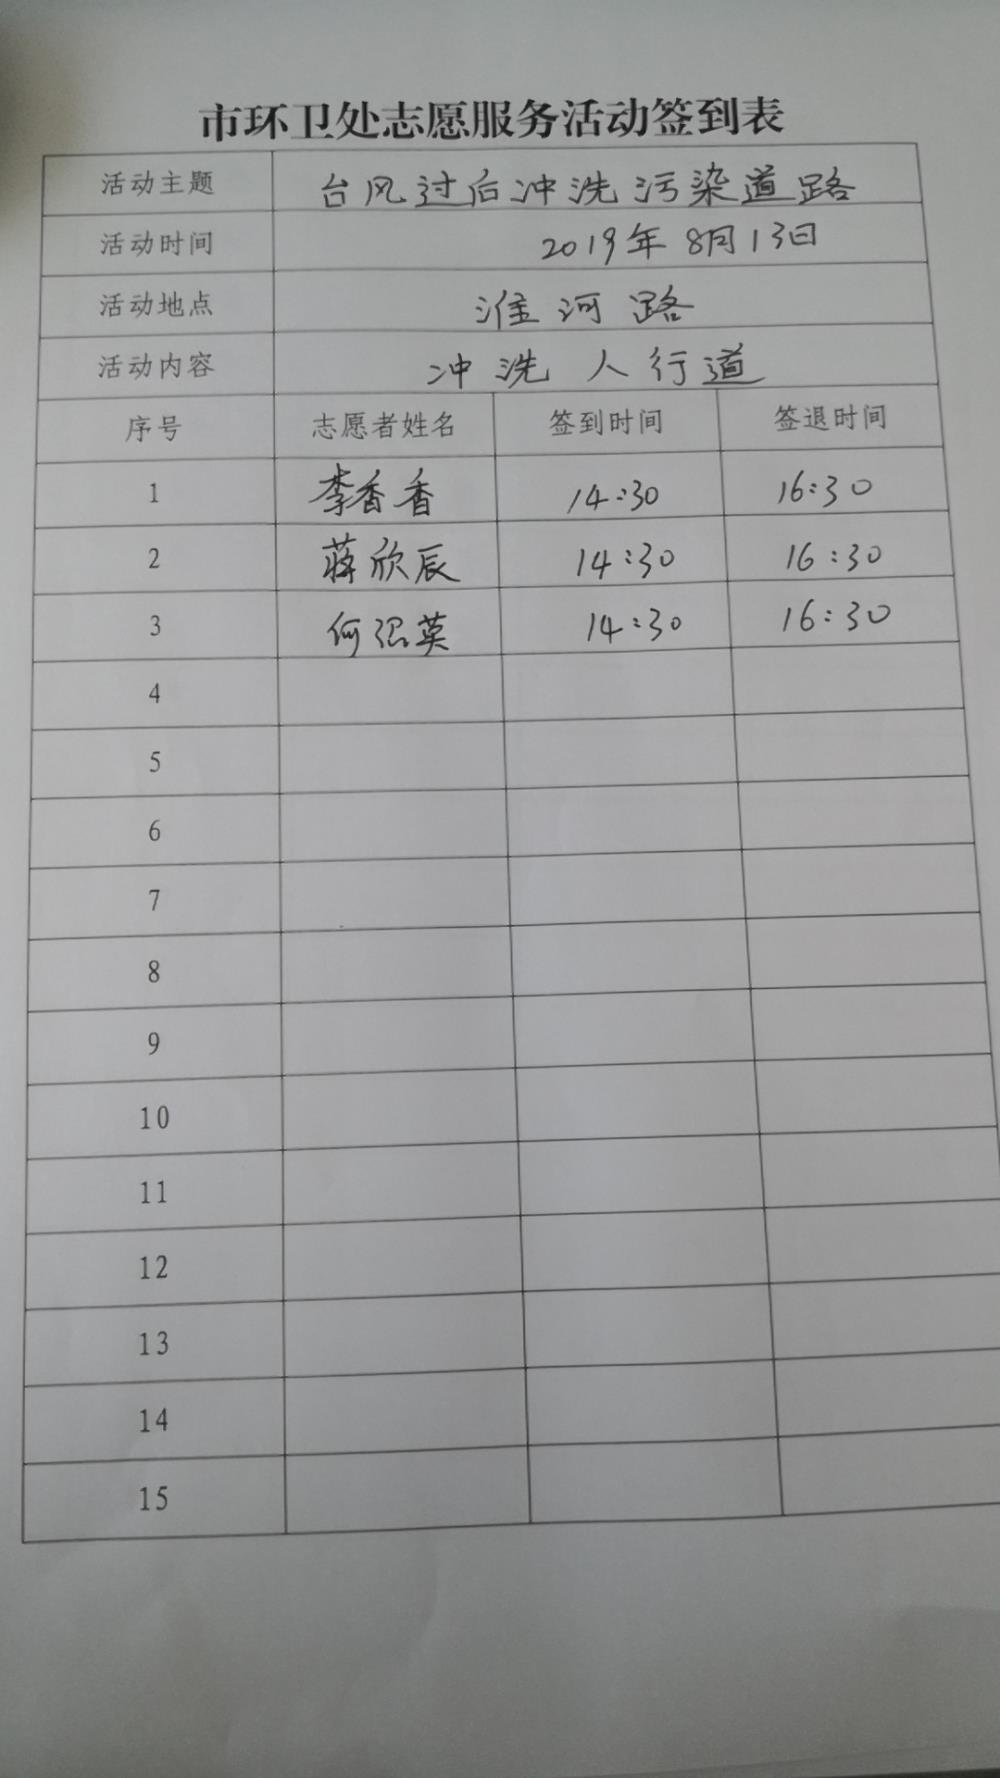 市环卫处志愿服务活动签到表
活动主题 台风过后冲洗污染道路
活动时间 2019年8月13日
活动地点 淮河路
活动内容 冲洗人行道
序号 志愿者姓名 签到时间 签退时间
1 李香香 14:30 16:30
2 蒋欣辰 14:30 16:30
3 何强英 14:30 16:30
4
5
6
7
8
9
10
11
12
13
14
15